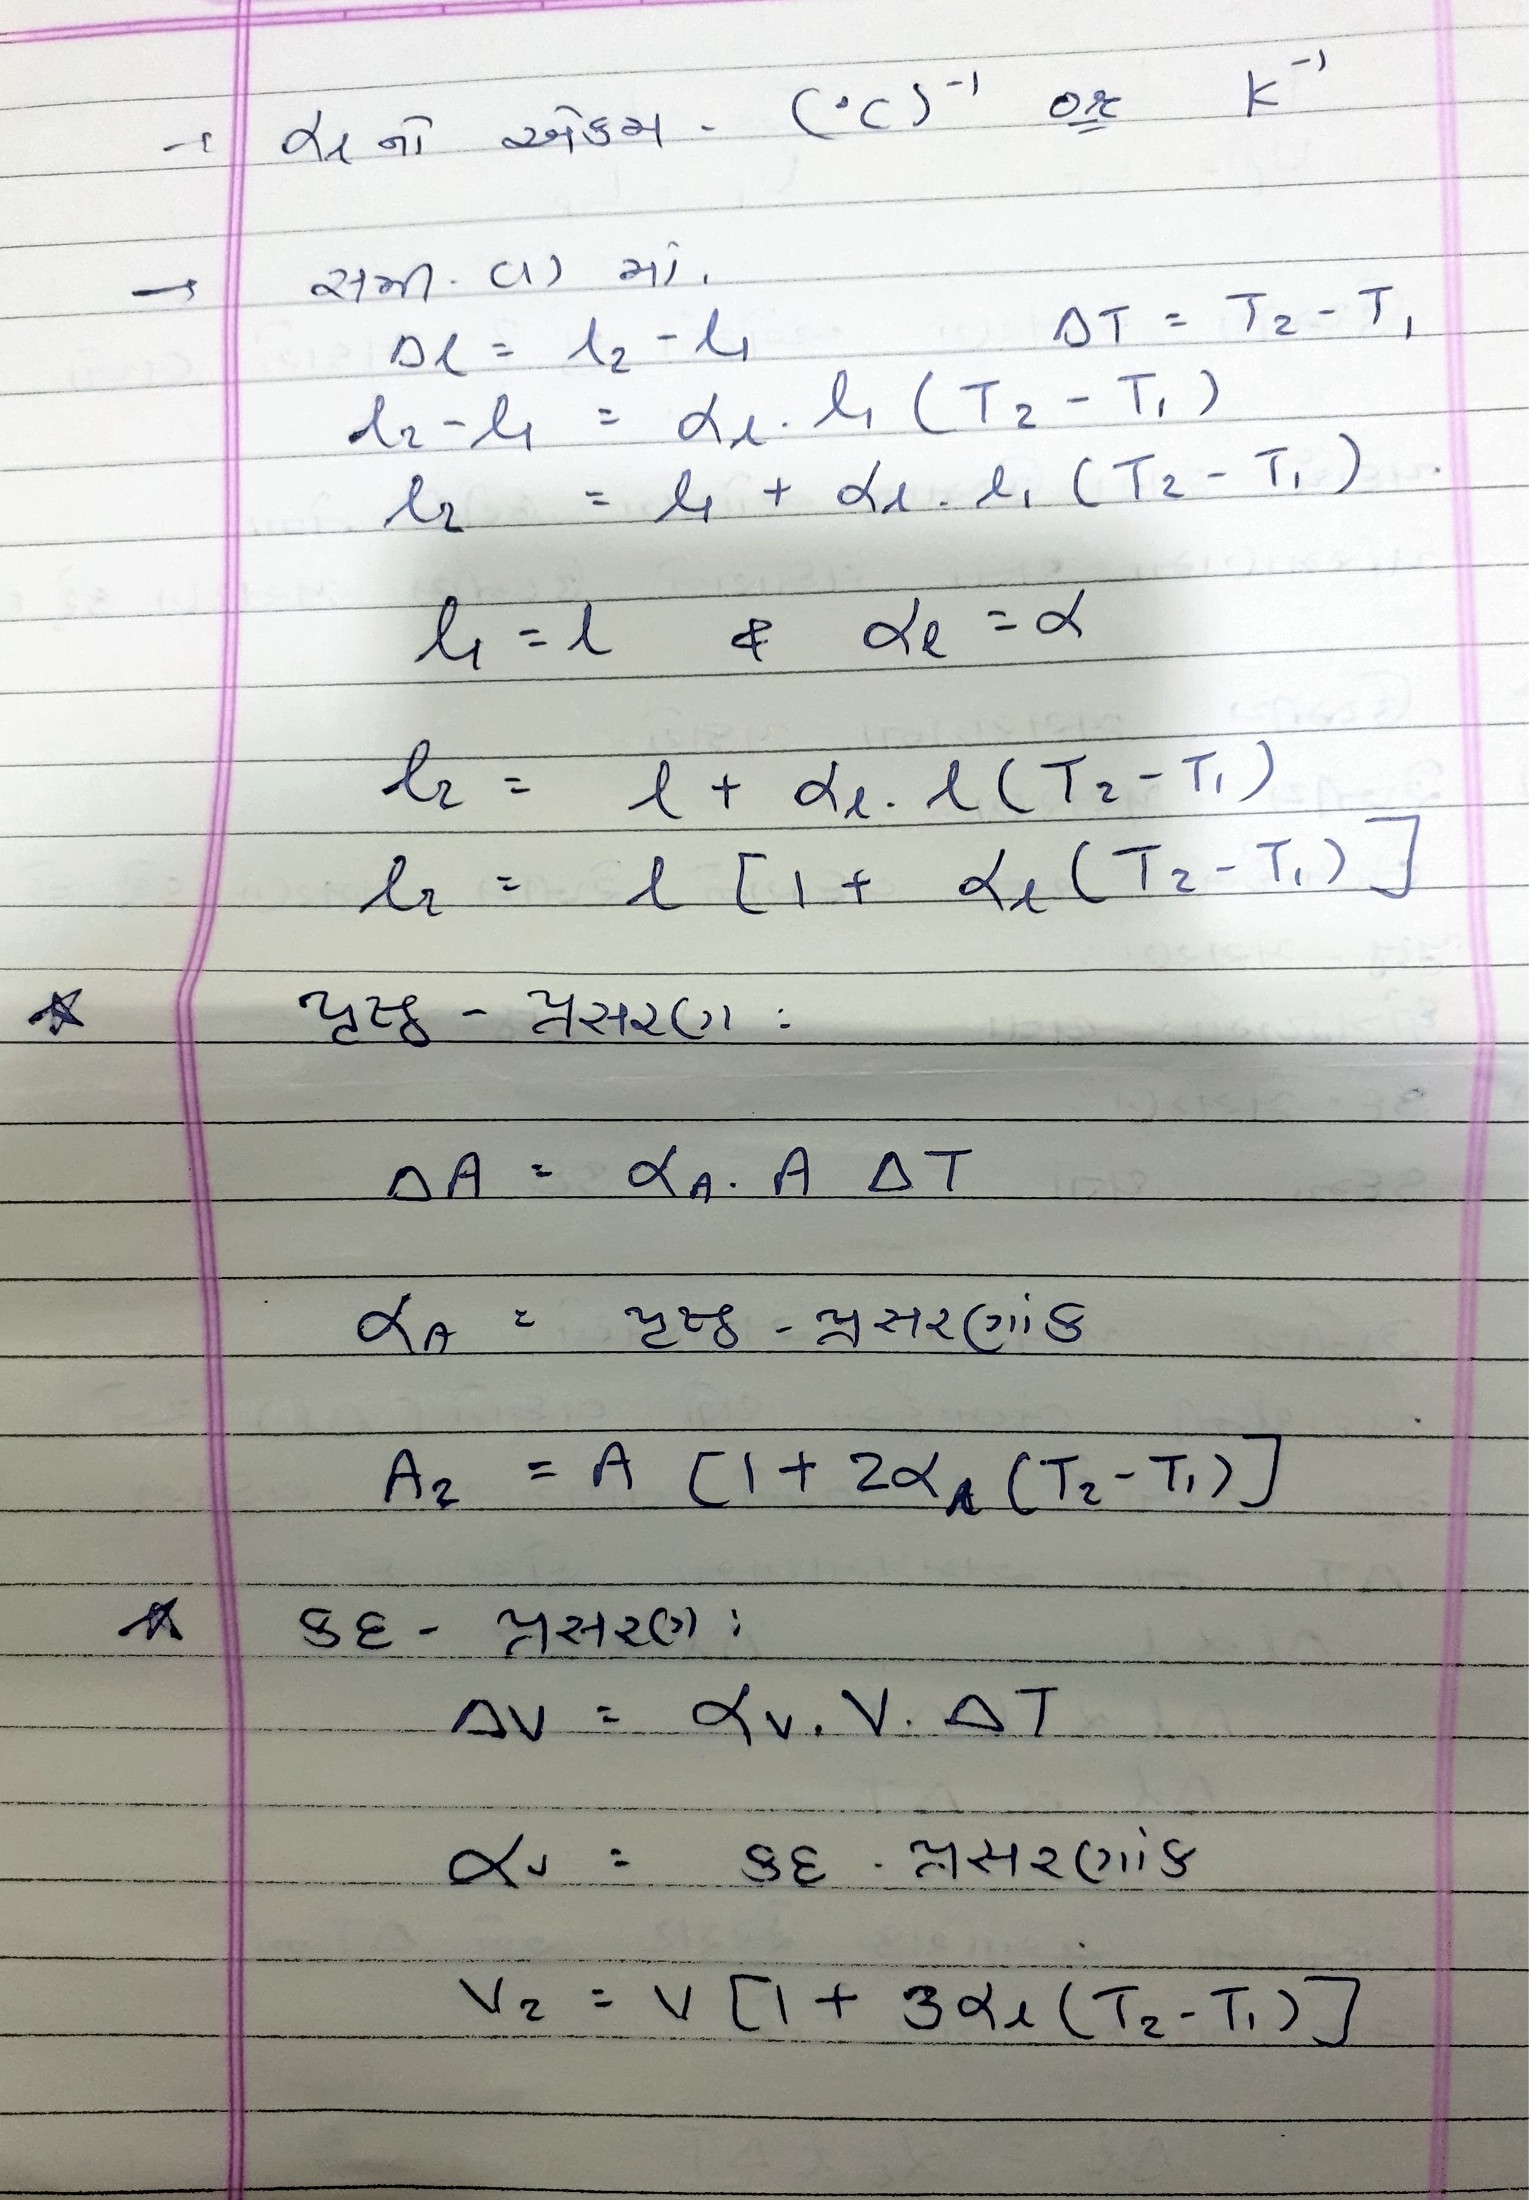 → αℓ નો એકમ - (°C)⁻¹ or K⁻¹
→ સમી. (1) માં,
Δℓ = ℓ₂ - ℓ₁ ΔT = T₂ - T₁
ℓ₂ - ℓ₁ = αℓ. ℓ₁ (T₂ - T₁)
ℓ₂ = ℓ₁ + αℓ. ℓ₁ (T₂ - T₁).
ℓ₁ = ℓ & αℓ = α
ℓ₂ = ℓ + αℓ. ℓ (T₂ - T₁)
ℓ₂ = ℓ [1 + αℓ (T₂ - T₁)]
★ પૃષ્ઠ - પ્રસરણ :
ΔA = α_A. A ΔT
α_A = પૃષ્ઠ - પ્રસરણાંક
A₂ = A [1 + 2αℓ (T₂ - T₁)]
★ કદ - પ્રસરણ :
ΔV = αᵥ. V. ΔT
αᵥ = કદ - પ્રસરણાંક
V₂ = V [1 + 3αℓ (T₂ - T₁)]